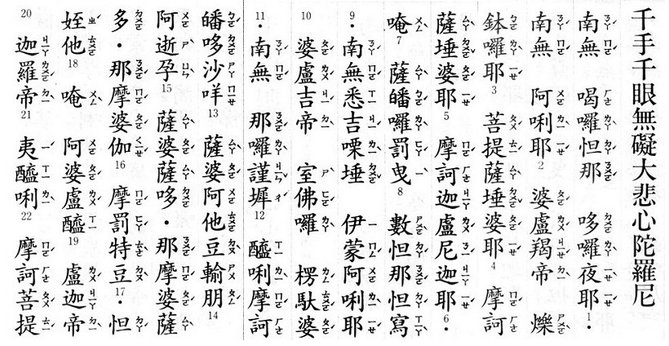 千手千眼無礙大悲心陀羅尼
南無 喝囉怛那 哆囉夜耶1·
南無 阿唎耶2 婆盧羯帝 爍
鉢囉耶3 菩提薩埵婆耶4 摩訶
薩埵婆耶5 摩訶迦盧尼迦耶6·
唵7 薩皤囉罰曳8 數怛那怛寫
9·南無悉吉㗚埵 伊蒙阿唎耶
10 婆盧吉帝 室佛囉 楞馱婆
11·南無 那囉謹墀12 醯唎摩訶
皤哆沙咩13 薩婆阿他豆輸朋14
阿逝孕15 薩婆薩哆·那摩婆薩
多·那摩婆伽16 摩罰特豆17·怛
姪他18 唵 阿婆盧醯19 盧迦帝
20 迦羅帝21 夷醯唎22 摩訶菩提